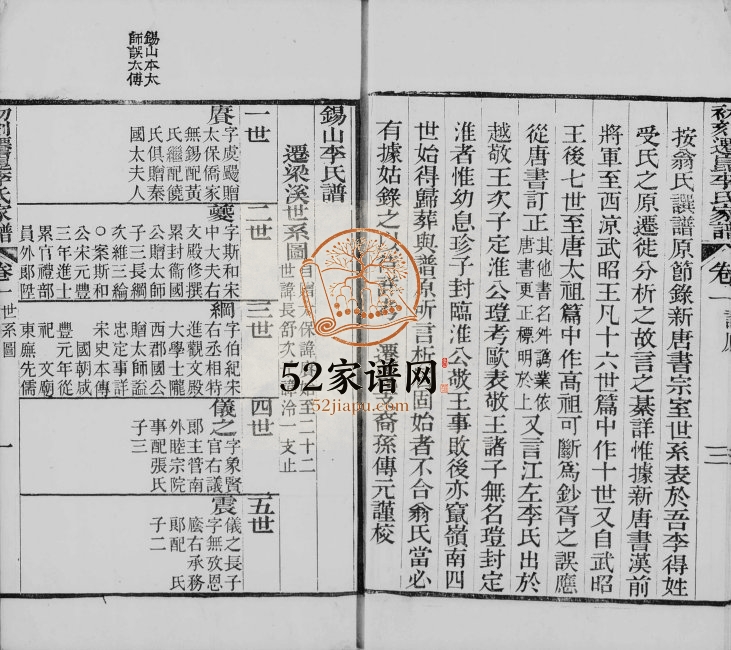 初刻遷
李氏家譜
卷一
三
按翁氏譔譜原節錄新唐書宗室世系表於吾李得姓
受氏之原遷徙分析之故言之綦詳惟據新唐書漢前
將軍至西涼武昭王凡十六世篇中作十世又自武昭
王後七世至唐太祖篇中作高祖可斷爲鈔胥之誤應
從唐書訂正其他書名舛譌業依唐書更正標明於上又言江左李氏出於
越敬王次子定淮公瓊考歐表敬王諸子無名瓊封定
淮者惟幼息珍子封臨淮公敬王事敗後亦竄嶺南四
世始得歸葬與譜原所言析固始者不合翁氏當必
有據姑錄之以
裔孫傳元謹校
錫山本太
師誤太傅
錫山李氏譜
遷梁溪世系圖
太保諱
始至二十二
世諱長舒次
諱泠一支止
一世
賡
字虞颺贈
太保僑家
無錫配黃
氏繼配饒
氏俱贈秦
國太夫人
二世
夔
字斯和宋
中大夫右
文殿修撰
累封衞國
公贈太師
子三長綱
次維三綸
○案斯和
公宋元豐
三年進士
累官禮部
員外郞陞
三世
綱
字伯紀宋
右丞相特
進觀文殿
大學士隴
西郡國公
贈太師謚
忠定事詳
宋史本傳
國朝咸
豐元年從
祀文廟
東廡先儒
四世
儀之
字象賢
官右議
郞主管南
外睦宗院
事配張氏
子三
五世
震
儀之長子
字無攷恩
廕右承務
郞配 氏
子二
初刻遷
李氏家譜
卷一
世系圖
一
52家谱网
52jiapu.com